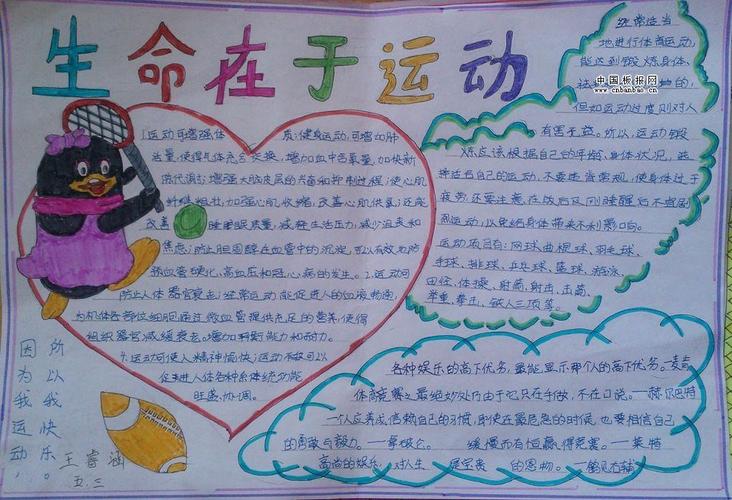 生命在于运动
1.运动可增强体质:健身运动,可增加肺
活量,使得气体充分交换,增加血中含氧量,加快新
陈代谢;增强大脑皮层的兴奋和抑制过程;使心肌
纤维粗壮,加强心肌收缩,改善心肌供氧;还能
改善睡眠质量,减轻生活压力,减少沮丧和
焦虑;防止胆固醇在血管中的沉淀,可以有效预防
动血管硬化,高血压和冠心病的发生。2.运动可
防止人体器官衰老;经常运动能促进人的血液物泡,
为机体各部位细胞通过微血管提供充足的营养,使得
组织器官减缓衰老。增加耐能力和耐力。
4.运动可使人精神愉快;运动不故可以
促进人体各种系体统功能
旺盛、协调。
经常适当
地进行体育运动,
能达到锻炼身体、
中国板报网
www.cnbanbao.cn
但如运动过度则对人
有害无益。所以,运动锻
炼应该根据自己的年龄、身体状况,选
择适合自己的运动,不要违背常规,使身体过于
疲劳还要注意在饭后及刚睡醒后不宜剧
烈运动,以免给身体带来不利影响。
运动项目有:网球曲棍球、羽毛球、
手球、排球、乒乓球、篮球、游泳、
田径、体操、射箭、射击、击箭、
举重、拳击、铁人三项等。
各种娱乐的高下优劣,最能显示那个人的高下优劣。—麦肯
体育竞赛之最绝妙处乃由于它只在手做,不在口说。—赫尔巴特
一个人应养成信赖自己的习惯,即使在最危急的时候,也要相信自己
的勇敢与毅力。—拿破仑。 缓慢而有恒赢得竞赛。—莱特
高尚的娱乐,对人生是宝贵的恩物。—鹤见右辅
所以我快乐。
因为我运动,
王睿涵
五.三